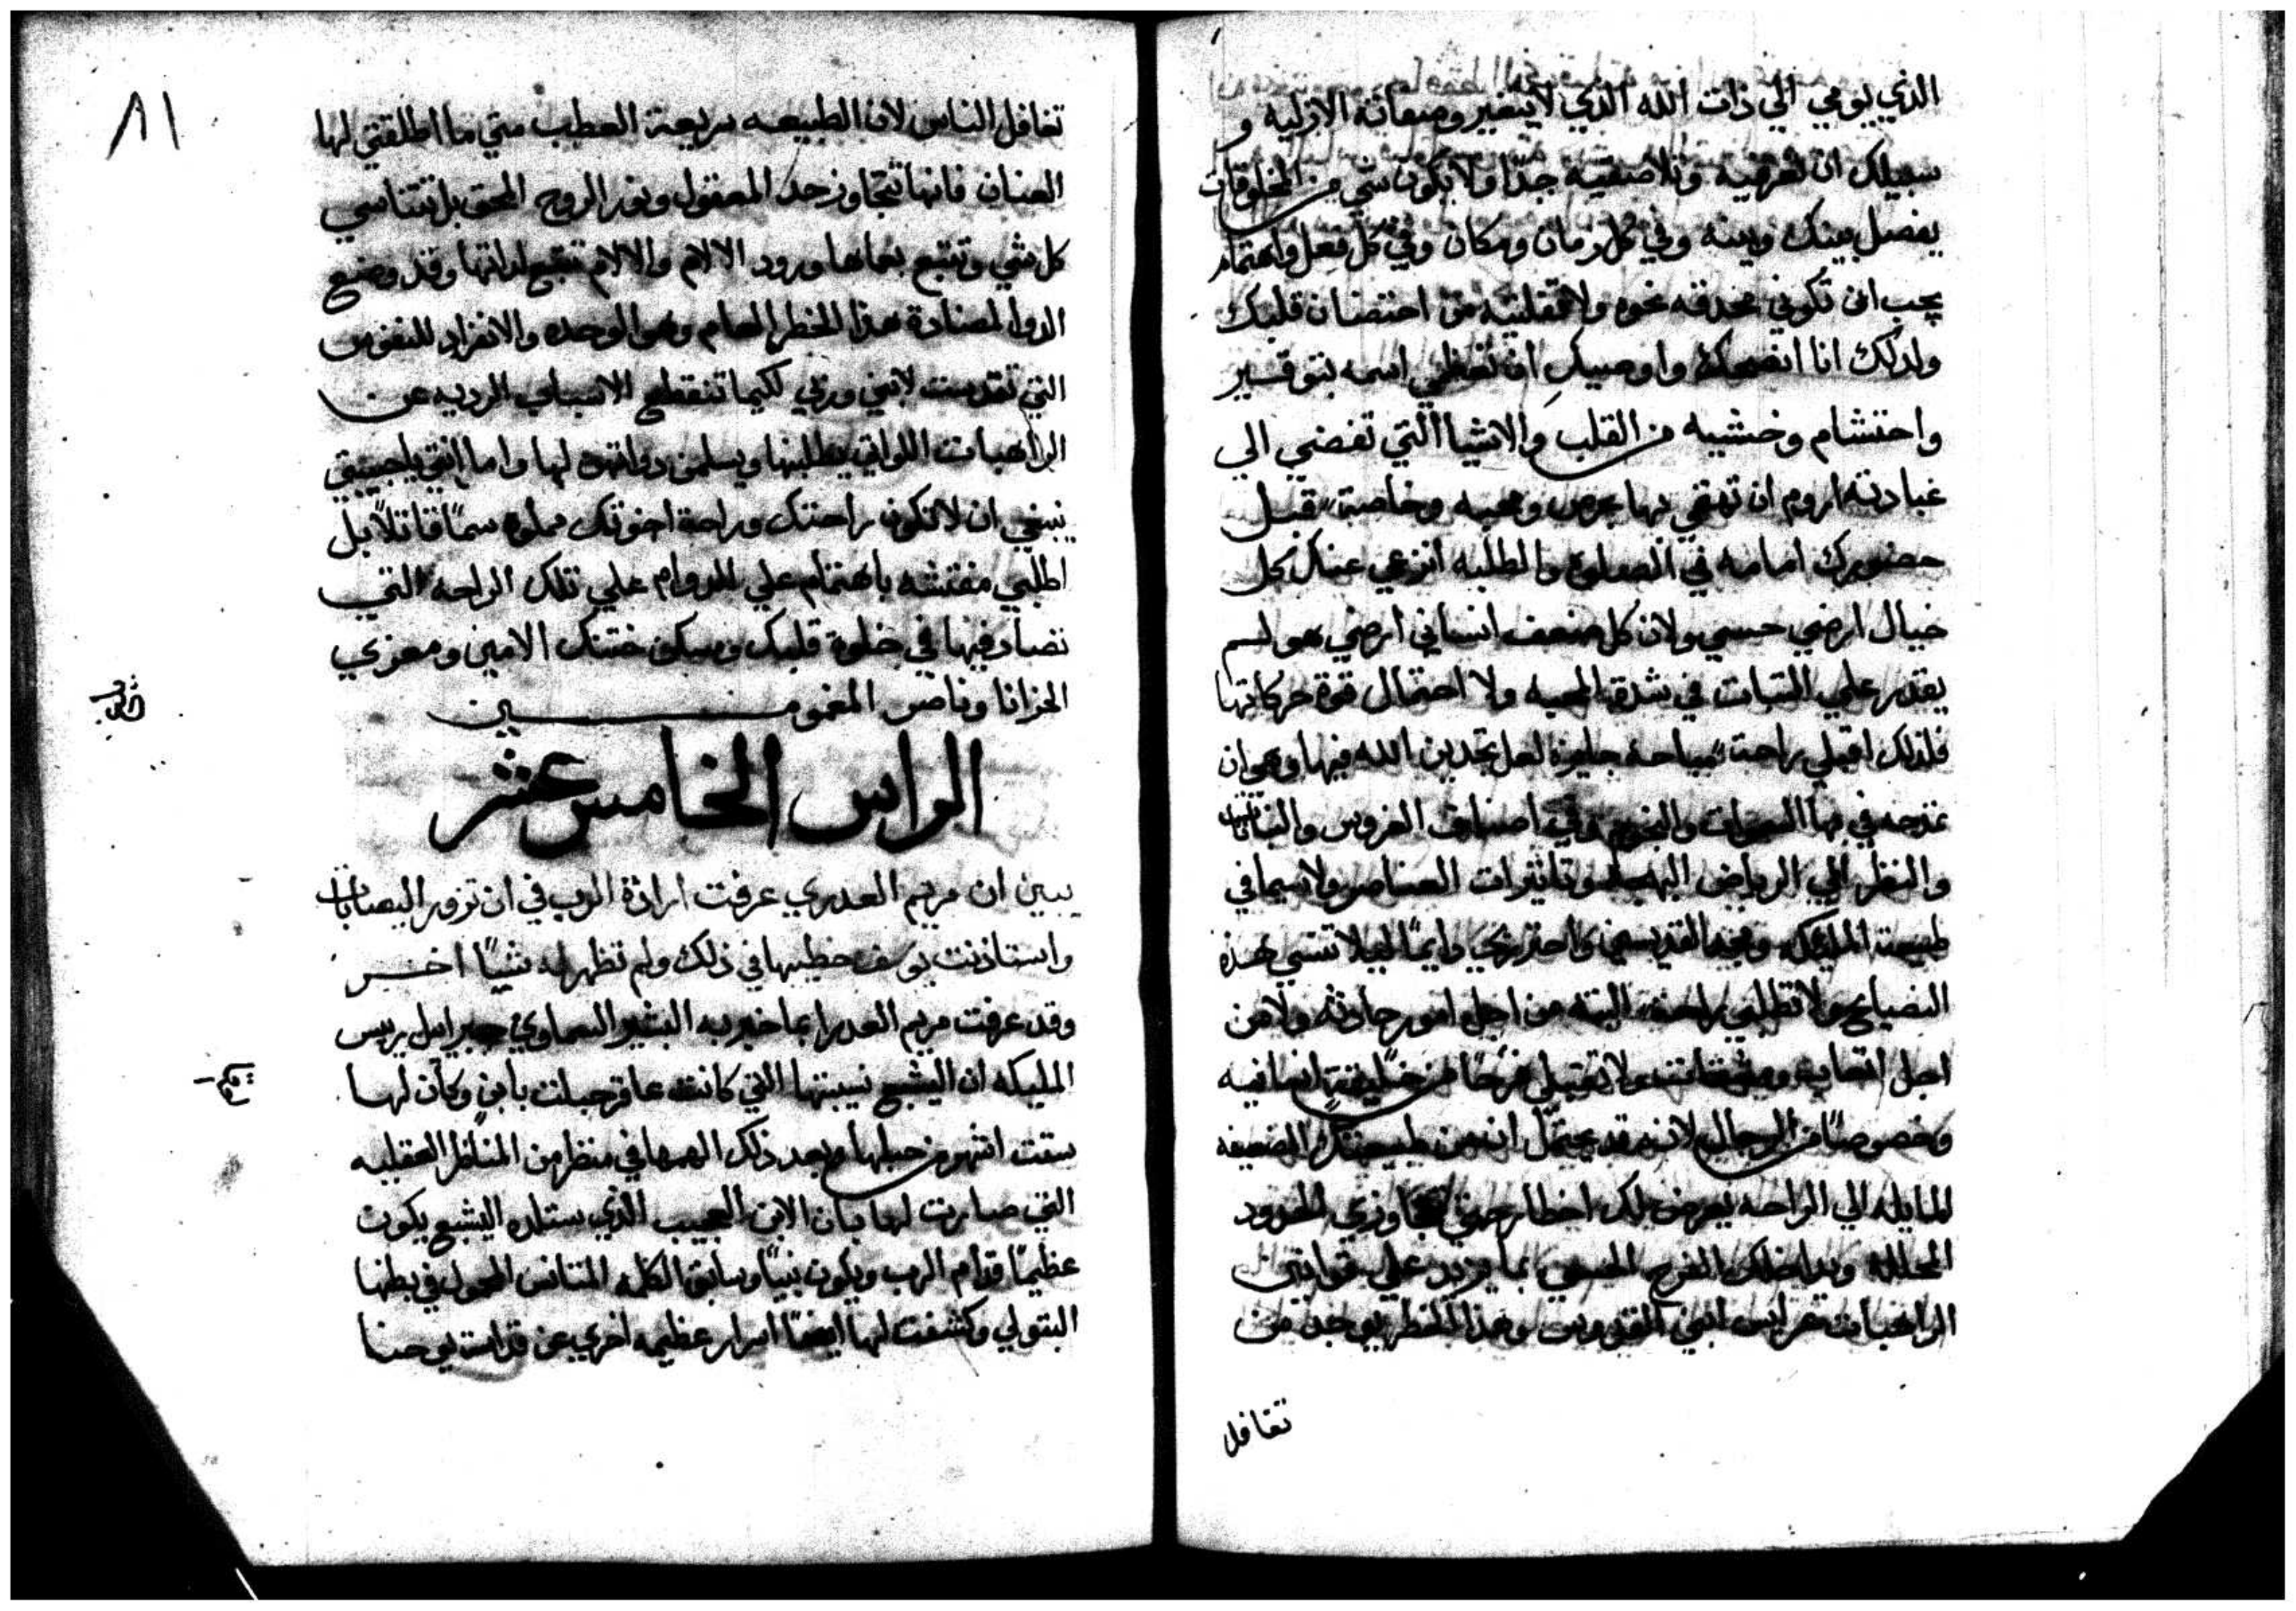 الذي يومي الي ذات الله الذي لا يتغير وصفاته الازليه و
سبيلك ان تعرفيه وتلاصقيه جدًا ولا يكون شي من المخلوقات
يفصل بينك وبينه وفي كل زمان ومكان وفي كل فعل واهتمام
يجب ان تكوني محدقه نحوه ولا تفلتيه من احتضان قلبك
ولذلك انا انصحك واوصيك ان تحفظي اسمه بتوقير
واحتشام وخشيه من القلب والاشيا التي تفضي الي
عبادته اروم ان تهتمي بها بحرص ومحبه وخاصة قبل
حضورك امامه في الصلوه والطلبه انزعي عنك كل
خيال ارضي حسي ولان كل ضعف انساني ارضي هو لم
يقدر علي الثبات في شدة المحبه ولا احتمال قوة حركاتها
فلذلك اقبلي راحة مباحة جايزه لعل تجدين الله فيها وهو ان
تمدحيه في بها السموات والنجوم وفي اصناف الغروس والنباتات
والنظر الي الرياض البهيه وتاثيرات العناصر ولا سيما في
طبيعة المليكه ومجد القديسين واحترزي دايمًا ليلا تنسي هذه
النصايح ولا تطلبي راحة البته من اجل امور حادثه ولا من
اجل اتعاب ومشقات ولا تقبلي فرحًا من خليقة انسانيه
وخصوصًا من الرجال لانه قد يحتمل انه من طبيعتك الضعيفه
المايله الي الراحه يعرض لك اخطار حتي تتجاوزي الحدود
المحلله ويداخلك الفرح الحسي بما يزيد علي قوانين
الراهبات عرايس ابني القدوس وهذا الخطر يوجد من
تغافل
٨١
تغافل الناس لان الطبيعه سريعة العطب متي ما اطلقتي لها
العنان فانها تتجاوز حد المعقول ونور الروح الحق بل تتناسي
كل شي وتتبع بعماها ورود الالام والالام تتبع لذاتها وقد وضع
الدوا لمضادة هذا الخطر العام وهو الوحده والانفراد للنفوس
التي تقدست لابني وربي لكيما تنقطع الاسباب الرديه عن
الراهبات اللواتي يطلبنها ويسلمن ذواتهن لها واما انتي يا حبيبتي
ينبغي ان لا تكون راحتك وراحة اخوتك مملوه سمًا قاتلاً بل
اطلبي مفتشه باهتمام علي الدوام علي تلك الراحه التي
تصادفيها في خلوة قلبك ومسكن ختنك الامين ومعزي
الحزانا وناصر المغمومين
الراس الخامس عشر
يبين ان مريم العدري عرفت ارادة الرب في ان تزور اليصابات
واستاذنت يوسف خطيبها في ذلك ولم تظهر له شيًا اخر
وقد عرفت مريم العدرا بما اخبر به البشير السماوي جبراييل رييس
المليكه ان اليشبع نسيبتها التي كانت عاقر حبلت بابن وكان لها
ستت اشهر من حبلها وبعد ذلك الهمها في منظر من المناظر العقليه
التي صارت لها بان الابن العجيب الذي ستلده اليشبع يكون
عظيمًا قدام الرب ويكون نبيًا وسابق الكلمه المتانس المحمول في بطنها
البتولي وكشفت لها ايضًا اسرار عظيمه اخري عن قداست يوحنا